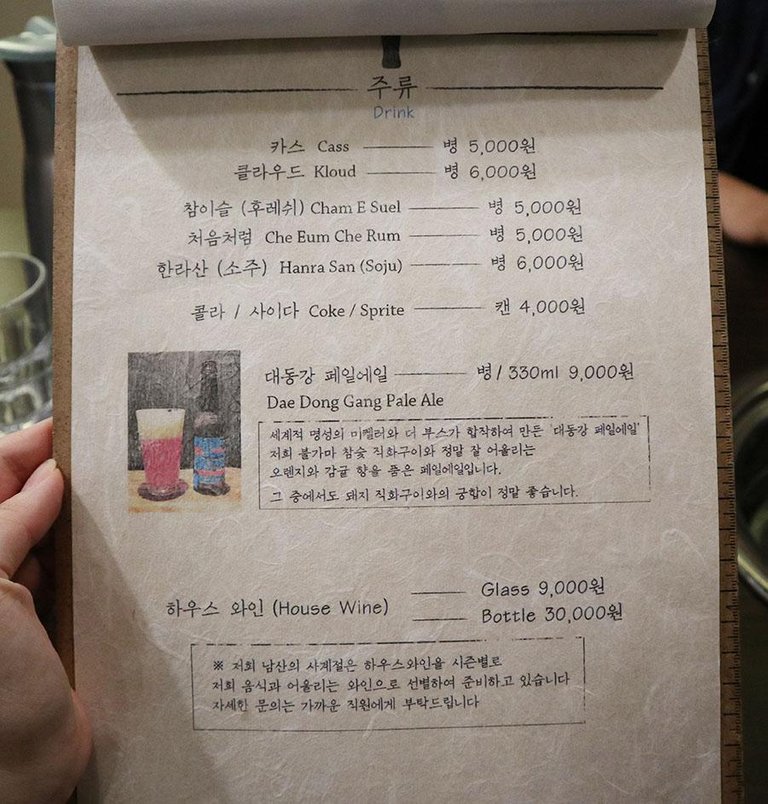 주류
Drink
카스 Cass 병 5,000원
클라우드 Kloud 병 6,000원
참이슬 (후레쉬) Cham E Suel 병 5,000원
처음처럼 Che Eum Che Rum 병 5,000원
한라산 (소주) Hanra San (Soju) 병 6,000원
콜라 / 사이다 Coke / Sprite 캔 4,000원
대동강 페일에일 병 / 330ml 9,000원
Dae Dong Gang Pale Ale
세계적 명성의 미켈러와 더 부스가 합작하여 만든 '대동강 페일에일'
저희 불가마 참숯 직화구이와 정말 잘 어울리는
오렌지와 감귤 향을 품은 페일에일입니다.
그 중에서도 돼지 직화구이와의 궁합이 정말 좋습니다.
하우스 와인 (House Wine)
Glass 9,000원
Bottle 30,000원
※ 저희 남산의 사계절은 하우스와인을 시즌별로
저희 음식과 어울리는 와인으로 선별하여 준비하고 있습니다
자세한 문의는 가까운 직원에게 부탁드립니다